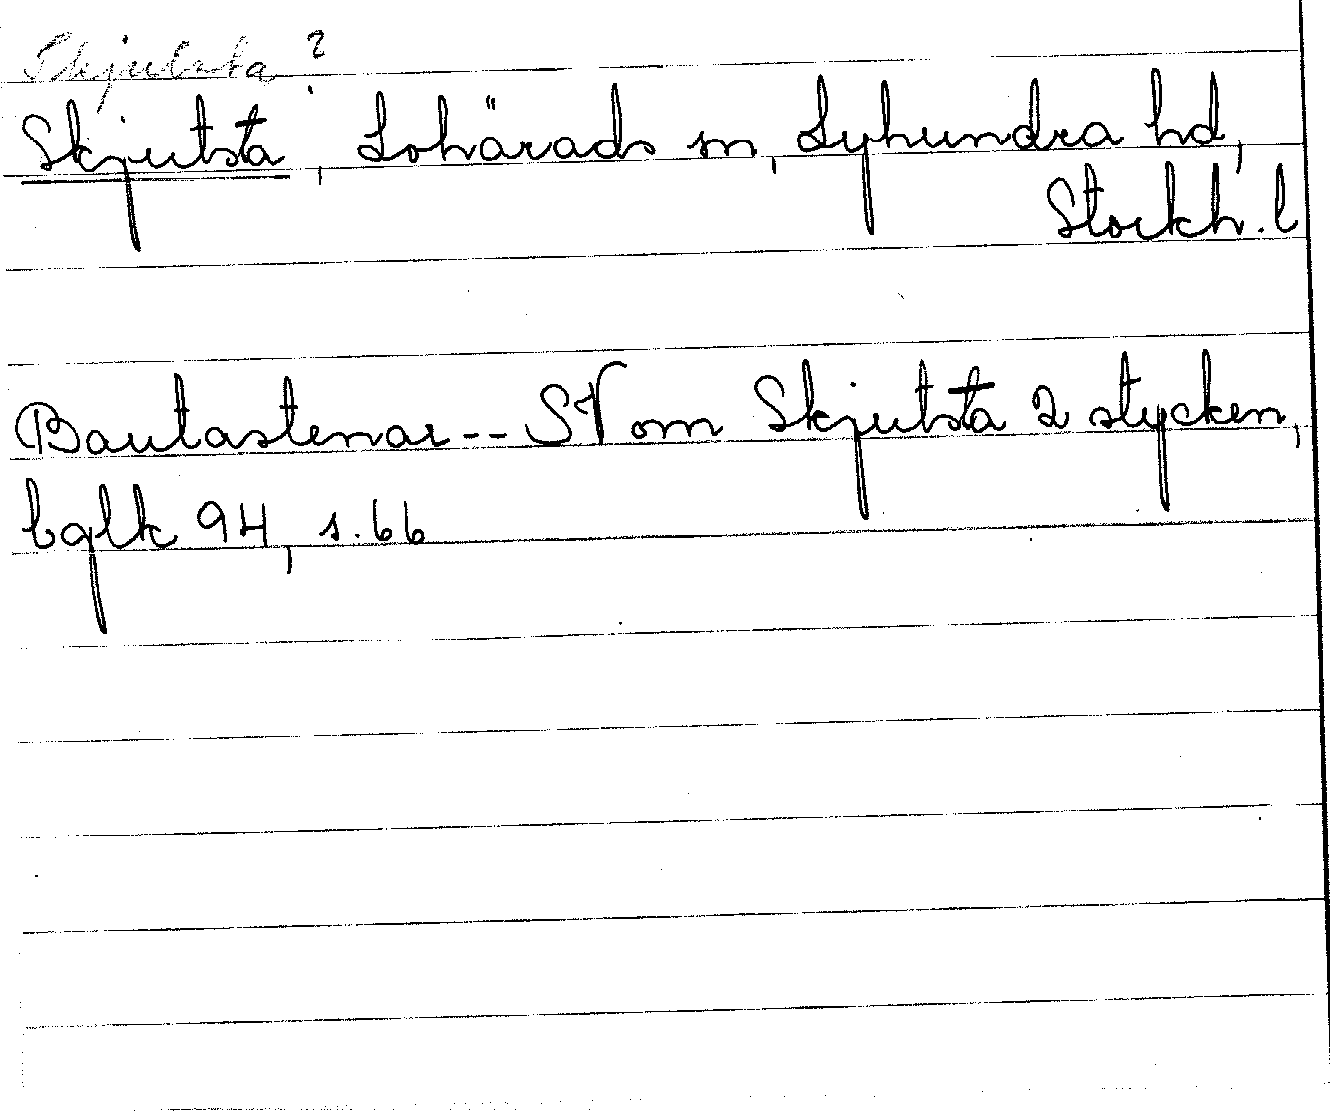 Skjulsta ?
Skjutsta, Lohärads sn, Lyhundra hd,
Stockh. l
Bautastenar -- SV om Skjutsta 2 stycken,
bglk 94, s. 66